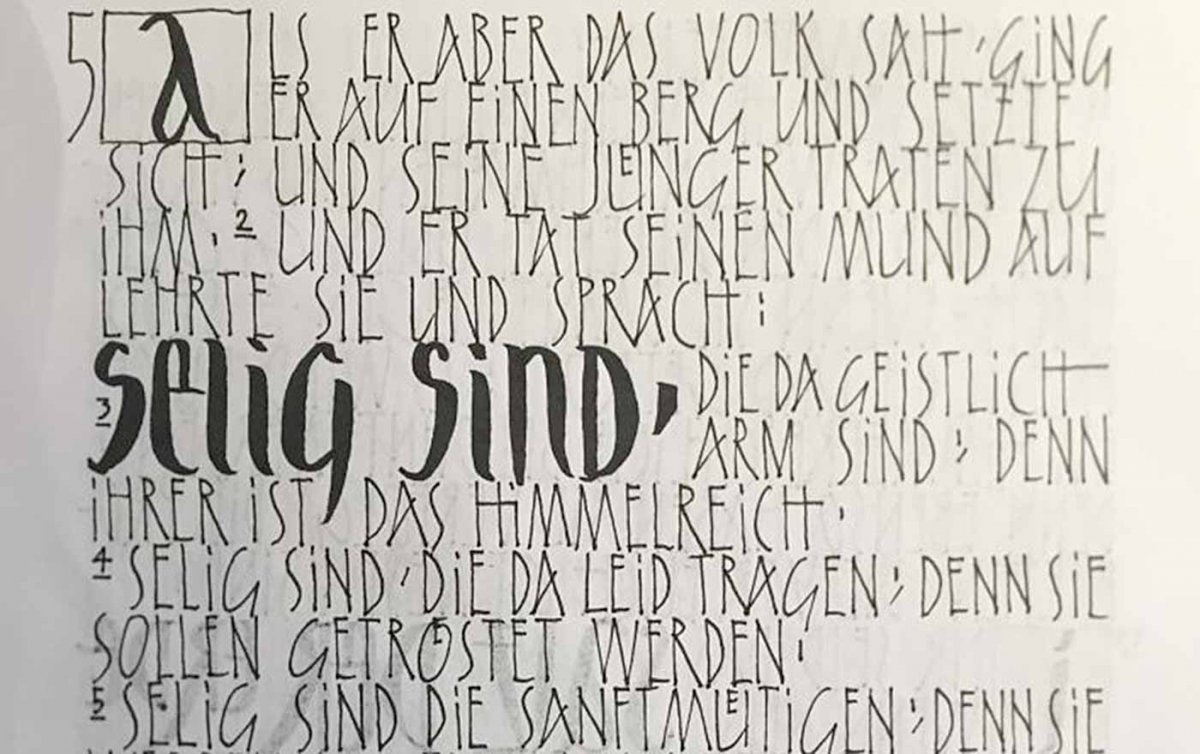 5 ALS ER ABER DAS VOLK SAH, GiNG
ER AUF EiNEN BERG UND SETZTE
SiCH; UND SEiNE JUͤNGER TRATEN ZU
iHM. 2 UND ER TAT SEiNEN MUND AUF
LEHRTE SiE UND SPRACH:
3 selig sind, DiE DA GEiSTLiCH
ARM SiND; DENN
iHRER iST DAS HiMMELREiCH.
4 SELiG SiND, DiE DA LEiD TRAGEN; DENN SiE
SOLLEN GETROͤSTET WERDEN.
5 SELiG SiND DiE SANFTMUͤTiGEN; DENN SiE